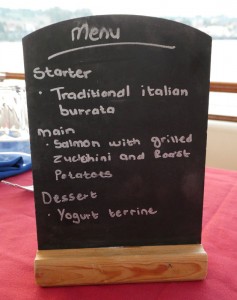 Menu
Starter
· Traditional italian
burrata
main
· Salmon with grilled
Zucchini and Roast
Potatoes
Dessert
· Yogurt terrine